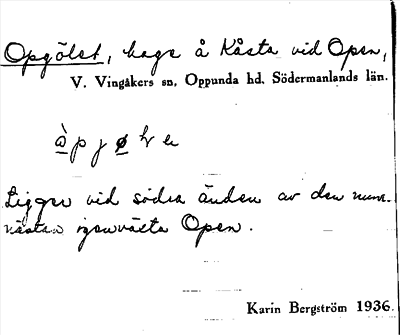 Opgölet, hage å Kåsta vid Open,
V. Vingåkers sn, Oppunda hd, Södermanlands län.
Ligger vid södra änden av den num.
nästan igenväxta Open.
Karin Bergström 1936.